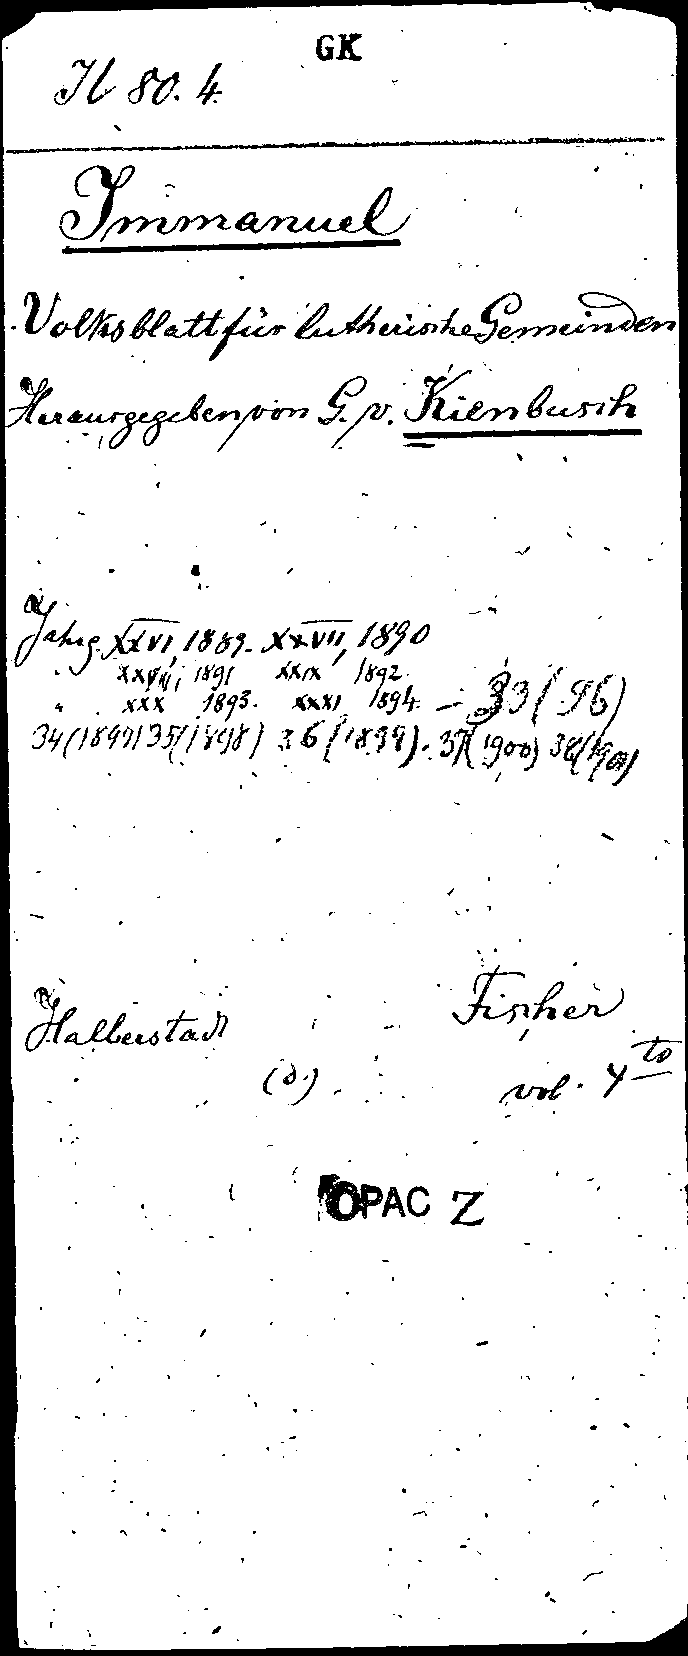 GK
H 80. 4.
Immanuel
Volksblatt für lutherische Gemeinden
Herausgegeben von G. v. Kienbusch
Jahrg. XXVI, 1889. XXVII, 1890
" XXVIII, 1891 XXIX 1892.
" XXX 1893. XXXI 1894. – 33 (96)
34 (1897) 35 (1898) 36 (1899). 37 (1900) 38 (1901)
Halberstadt Fischer
(d.) vol. 4to
OPAC Z